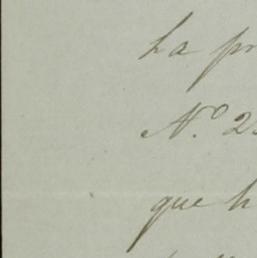 La pr
N.o 2
que h